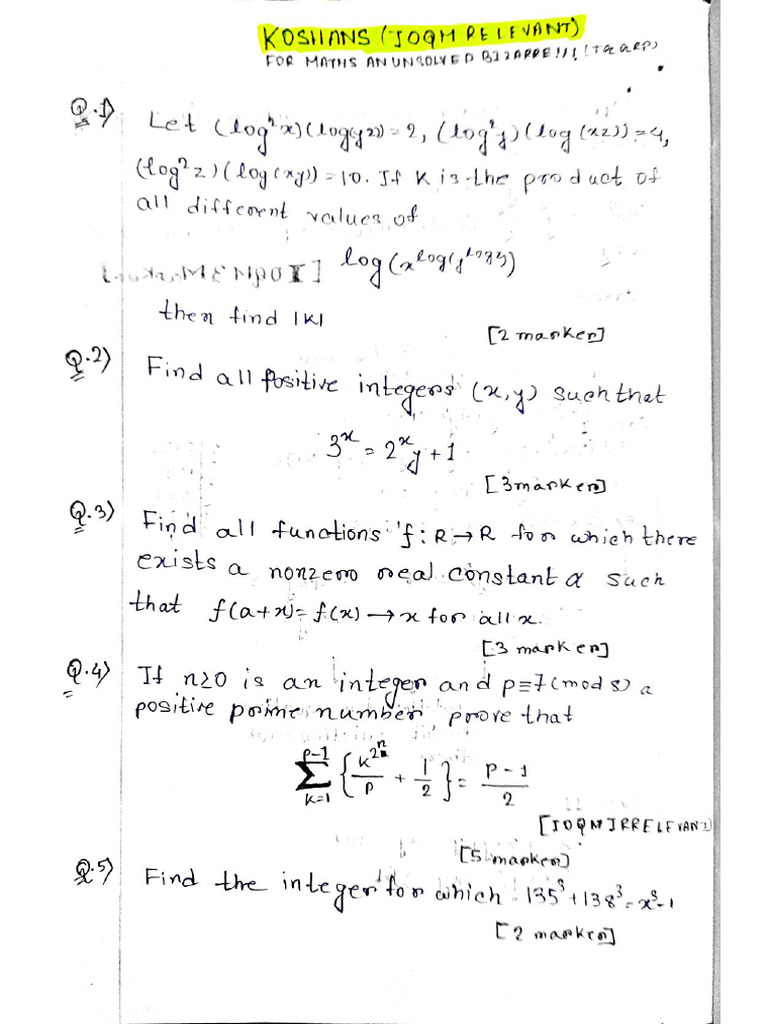 KOSHANS (IOQM RELEVANT)
FOR MATHS AN UNSOLVED BIZARRE!!!
Q.1) Let (log²x)(log(yz))=2, (log²y)(log(xz))=4,
(log²z)(log(xy))=10. If K is the product of
all different values of
log(x^log(y^log z))
then find |K|
[2 marker]
Q.2) Find all positive integers (x,y) such that
3^x = 2^x y + 1
[3 marker]
Q.3) Find all functions 'f: R→R for which there
exists a nonzero real constant α such
that f(a+x)=f(x) → x for all x.
[3 marker]
Q.4) If n≥0 is an integer and p≡7(mod 8) a
positive prime number, prove that
p-1 Σ k=1 {k^2^n / p + 1/2} = p-1 / 2
[IOQM IRRELEVANT]
[5 marker]
Q.5) Find the integer for which 135³+138³=x³-1
[2 marker]